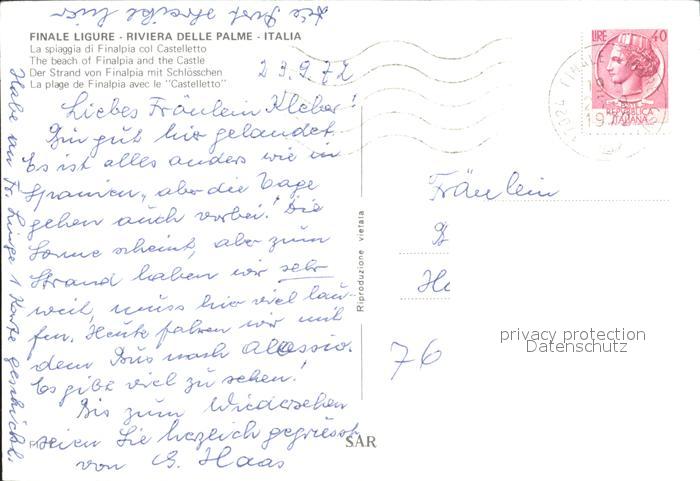 FINALE LIGURE - RIVIERA DELLE PALME - ITALIA
La spiaggia di Finalpia col Castelletto
The beach of Finalpia and the Castle
Der Strand von Finalpia mit Schlösschen
La plage de Finalpia avec le "Castelletto"
23.9.72
Liebes Fräulein Kleber!
Bin gut hier gelandet.
Es ist alles anders wie in
Spanien, aber die Tage
gehen auch vorbei! Die
Sonne scheint, aber zum
Strand haben wir sehr
weit, muss hier viel lau-
fen. Heute fahren wir mit
dem Bus nach Alassio.
Es gibt viel zu sehen!
Bis zum Wiedersehen
seien Sie herzlich gegrüsst
von G. Haas
Habe an Fr. Linge 1 Karte geschickt.
Riproduzione vietata
SAR
LIRE 40
REPUBBLICA
ITALIANA
Fräulein
76
privacy protection
Datenschutz